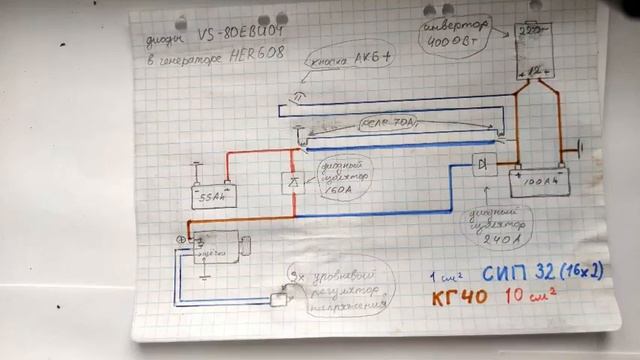 диоды VS-80EBU04
в генераторе HER608
инвертор
4000Вт
220~
- 12 +
кнопка АКБ+
реле 70А
диодный
изолятор
160А
55Ач
100Ач
диодный
изолятор
240А
щётки
3х уровневый
регулятор
напряжения
1 см² СИП 32 (16x2)
КГ40 10 см²